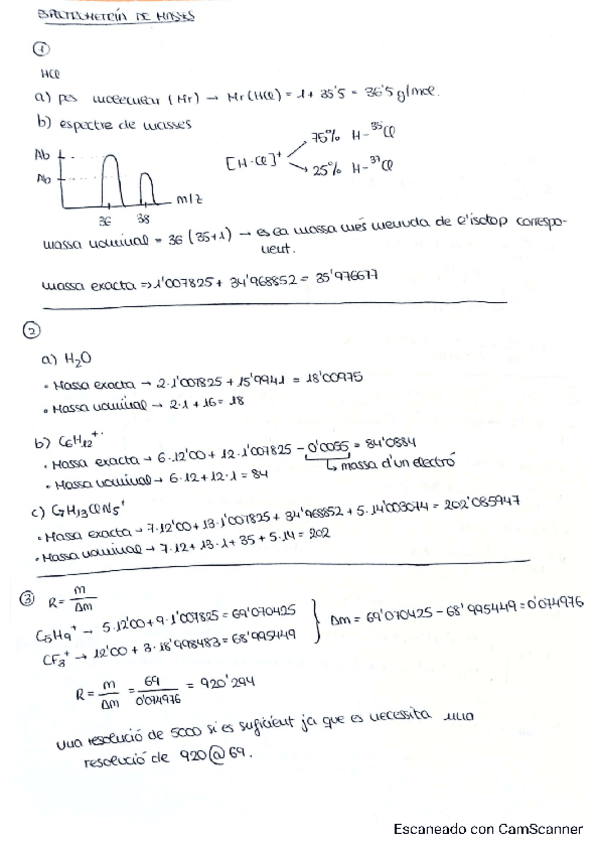 ESPECTROMETRÍA DE MASES
①
HCl
a) pes molecular (Mr) → Mr (HCl) = 1 + 35'5 = 36'5 g/mol.
b) espectre de masses
Ab
Ab
36 38 m/z
[H-Cl]⁺
75% H-³⁵Cl
25% H-³⁷Cl
massa nominal = 36 (35+1) → es la massa més menuda de l'isòtop correspo-
nent.
massa exacta => 1'007825 + 34'968852 = 35'976677
②
a) H₂O
• Massa exacta → 2·1'007825 + 15'9941 = 18'00975
• Massa nominal → 2·1 + 16 = 18
b) C₆H₁₂⁺·
• Massa exacta → 6·12'00 + 12·1'007825 - 0'0055 = 84'0884
↳ massa d'un electró
• Massa nominal → 6·12 + 12·1 = 84
c) C₇H₁₃ClN₅⁺
• Massa exacta → 7·12'00 + 13·1'007825 + 34'968852 + 5·14'003074 = 202'085947
• Massa nominal → 7·12 + 13·1 + 35 + 5·14 = 202
③ R = m/Δm
C₅H₉⁺ → 5·12'00 + 9·1'007825 = 69'070425
CF₃⁺ → 12'00 + 3·18'998483 = 68'995449
Δm = 69'070425 - 68'995449 = 0'074976
R = m/Δm = 69/0'074976 = 920'294
una resolució de 5000 si es suficient ja que es necessita una
resolució de 920@69.
Escaneado con CamScanner